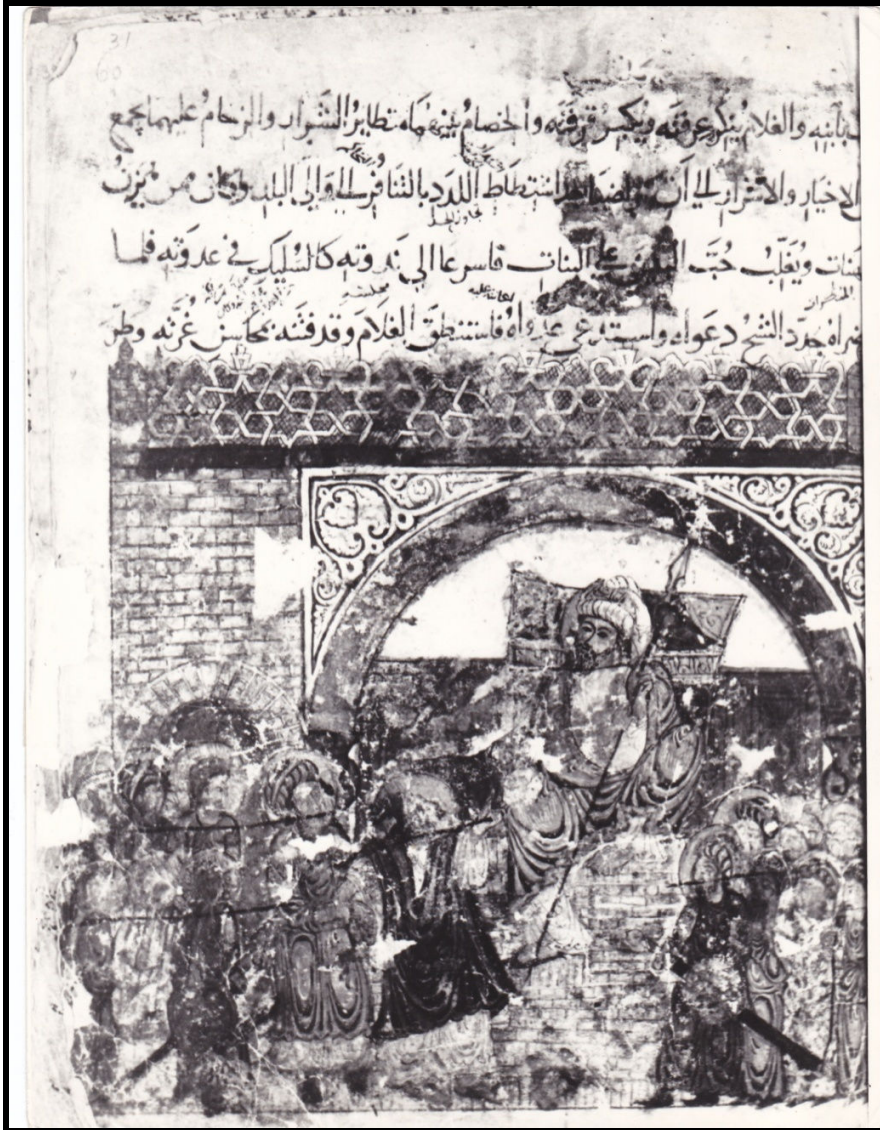 31
60
بابنه والغلام ينكر عرفته ويكبر قرفته والخصام بينهما متطاير الشرار والزحام عليهما يجمع
الاخيار والاشرار الي أن اشتطاط اللدد بالتنافر الي والي البلد وكان ممن يزن
ويغلب حب البنين علي البنات فاسرعا الي ندوته كالسليك في عدوته فلما
جدد الشيخ دعواه واستدعي عدواه فاستنطق الغلام وقد فتنه بمحاسن غرته وطر